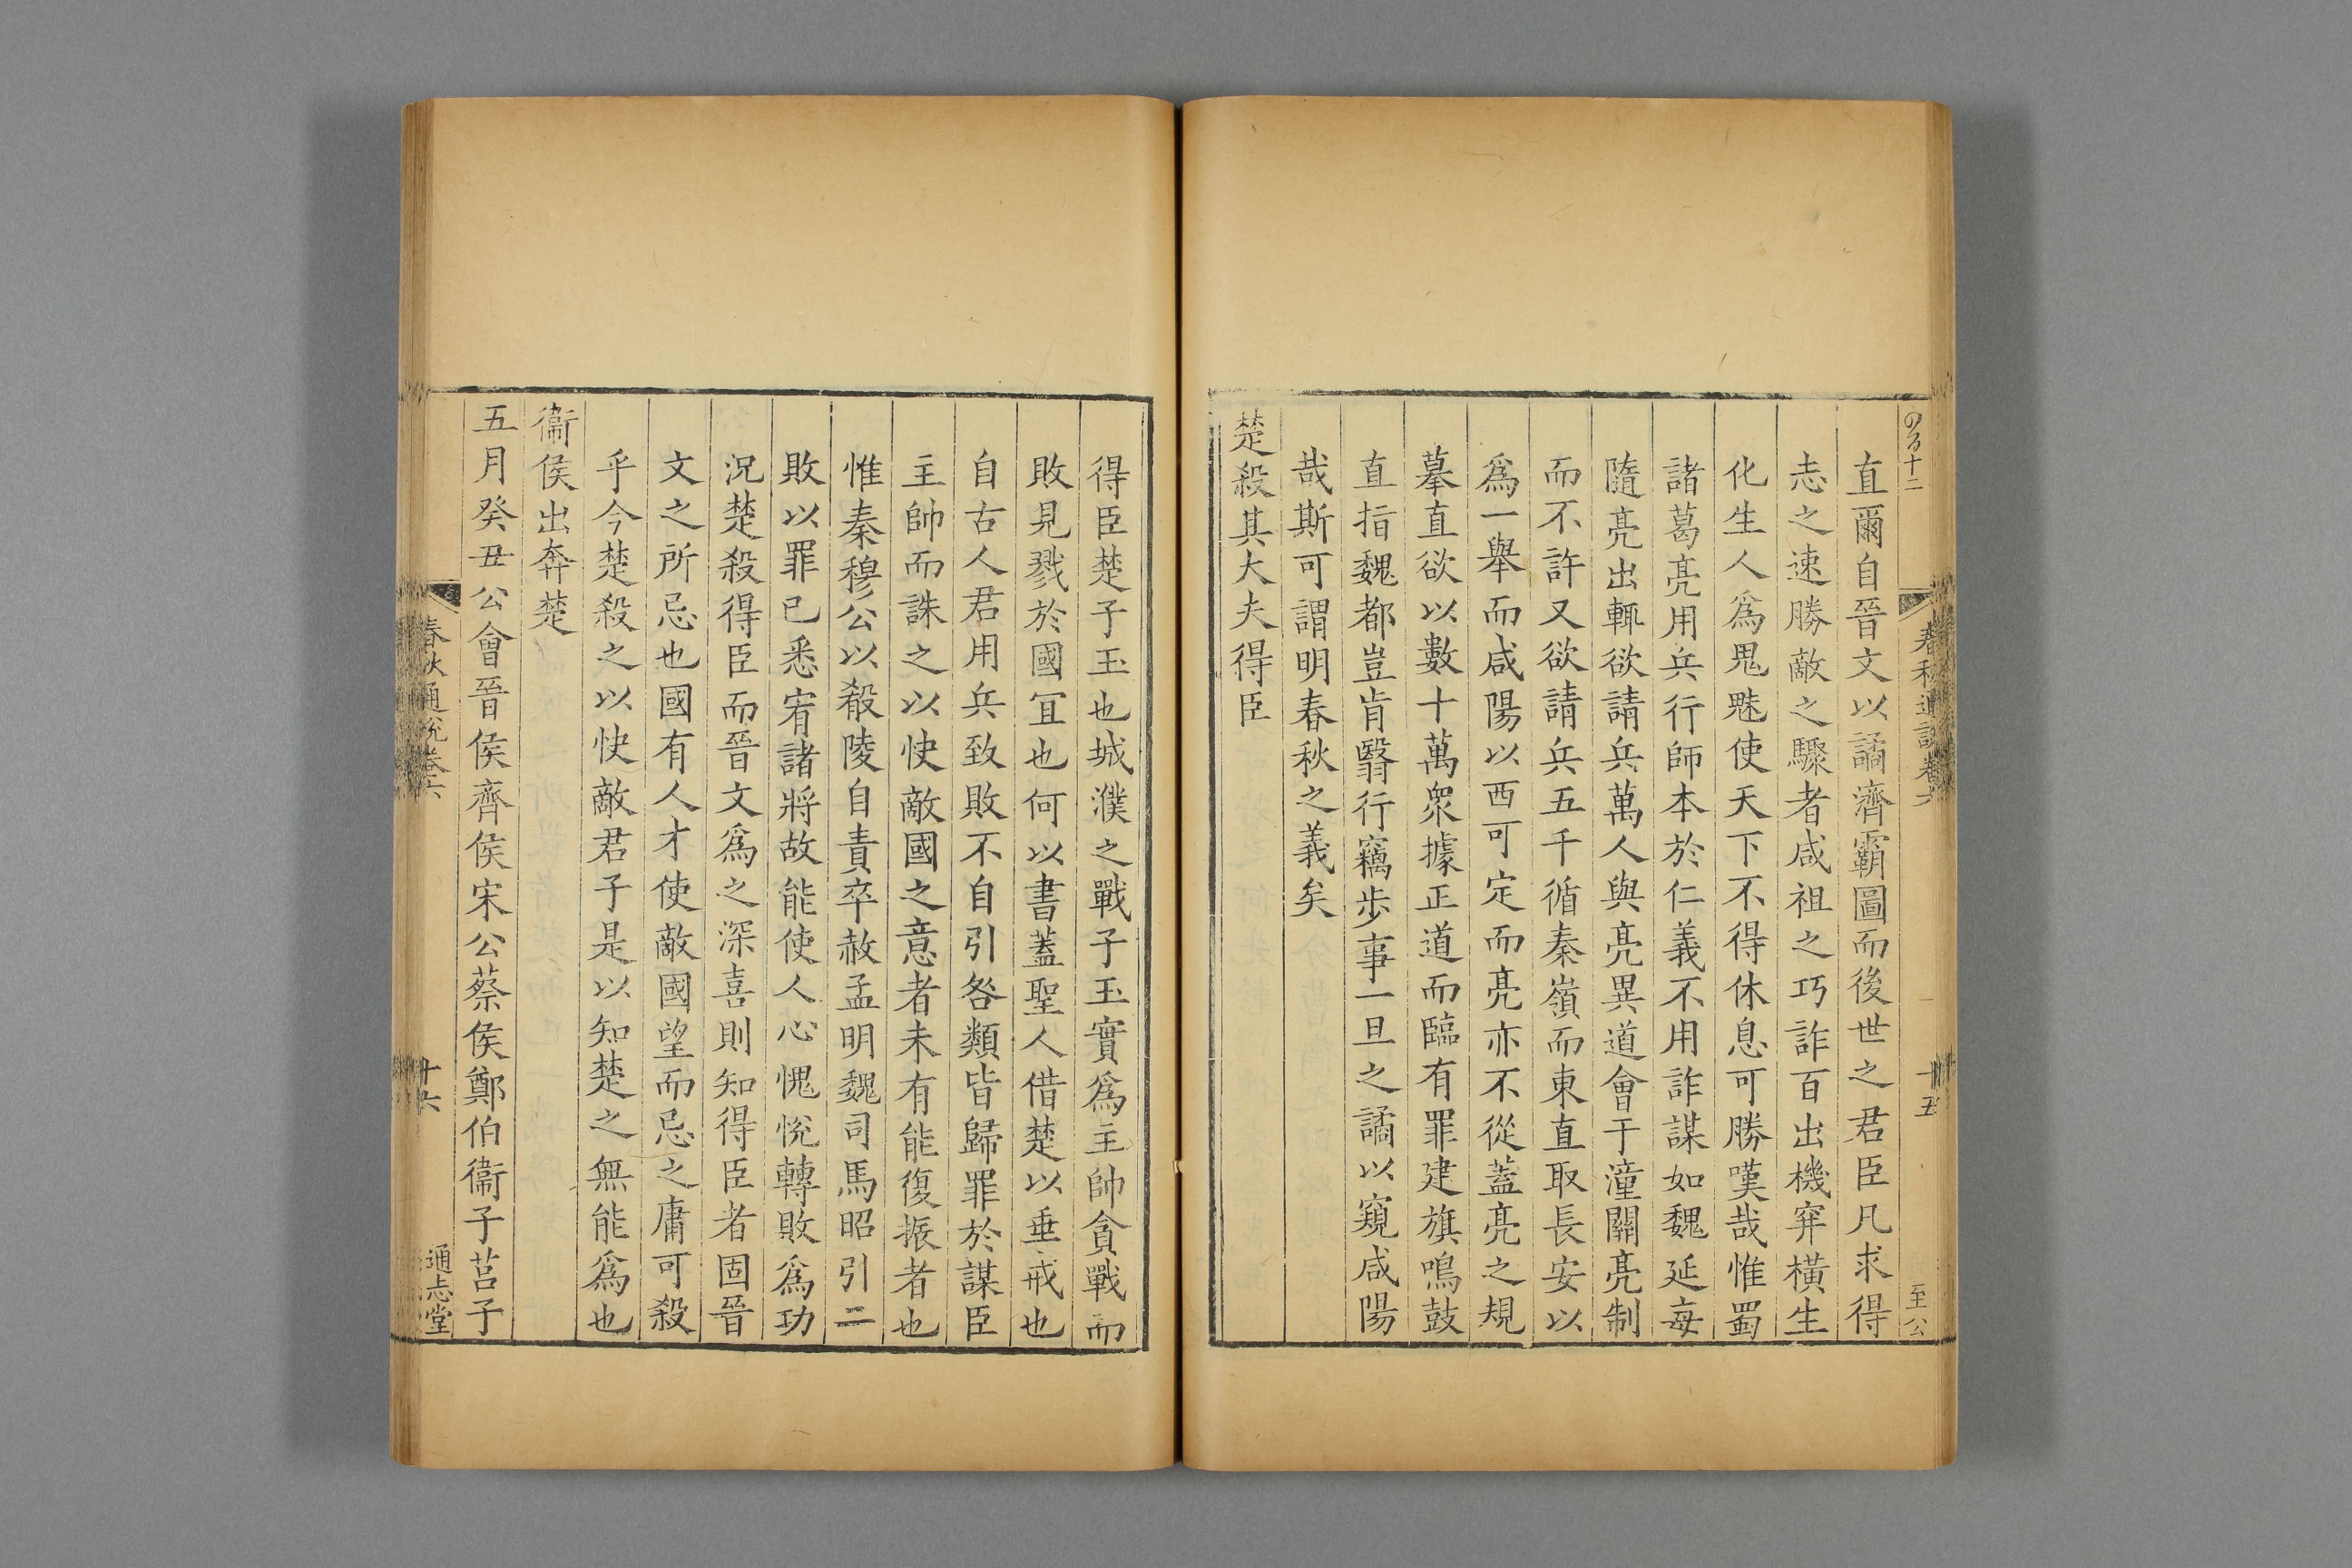 春秋通說卷六
十五
至公
直爾自晉文以譎濟霸圖而後世之君臣凡求得
志之速勝敵之驟者咸祖之巧詐百出機穽橫生
化生人爲鬼魅使天下不得休息可勝嘆哉惟蜀
諸葛亮用兵行師本於仁義不用詐謀如魏延每
隨亮出輒欲請兵萬人與亮異道會于潼關亮制
而不許又欲請兵五千循秦嶺而東直取長安以
爲一舉而咸陽以西可定而亮亦不從蓋亮之規
摹直欲以數十萬衆據正道而臨有罪建旗鳴鼓
直指魏都豈肯翳行竊步事一旦之譎以窺咸陽
哉斯可謂明春秋之義矣
楚殺其大夫得臣
得臣楚子玉也城濮之戰子玉實爲主帥貪戰而
敗見戮於國宜也何以書蓋聖人借楚以垂戒也
自古人君用兵致敗不自引咎類皆歸罪於謀臣
主帥而誅之以快敵國之意者未有能復振者也
惟秦穆公以殽陵自責卒赦孟明魏司馬昭引二
敗以罪已悉宥諸將故能使人心愧悅轉敗爲功
況楚殺得臣而晉文爲之深喜則知得臣者固晉
文之所忌也國有人才使敵國望而忌之庸可殺
乎今楚殺之以快敵君子是以知楚之無能爲也
衞侯出奔楚
五月癸丑公會晉侯齊侯宋公蔡侯鄭伯衞子莒子
春秋通說卷六
十六
通志堂